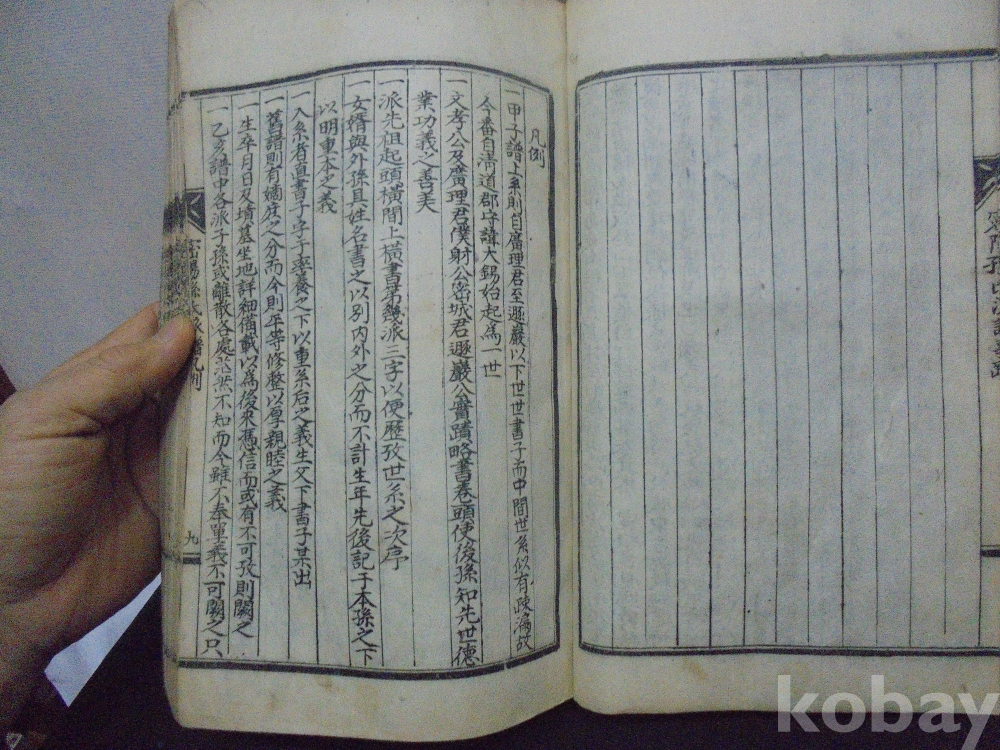 凡例
一甲子譜上系則自廣理君至遯巖以下世世書子而中間世系似有疎漏故
今番自淸道郡守諱大錫始起爲一世
一文孝公及廣理君僕射公密城君遯巖公實蹟略書卷頭使後孫知先世德
業功義之善美
一派先祖起頭橫間上橫書第幾派三字以便歷攷世系之次序
一女婿與外孫具姓名書之以別內外之分而不計生年先後記于本孫之下
以明重本之義
一入系者直書子字于率養之下以重系后之義生父下書子某出
一舊譜則有嫡庶之分而今則平等修整以厚親睦之義
一生卒日月及墳墓坐地詳細備載以爲後來憑信而或有不可攷則闕之
一乙亥譜中各派子孫或離散各處茫然不知而今雖不奉單義不可闕之只
密陽孫氏派譜凡例
九
kobay